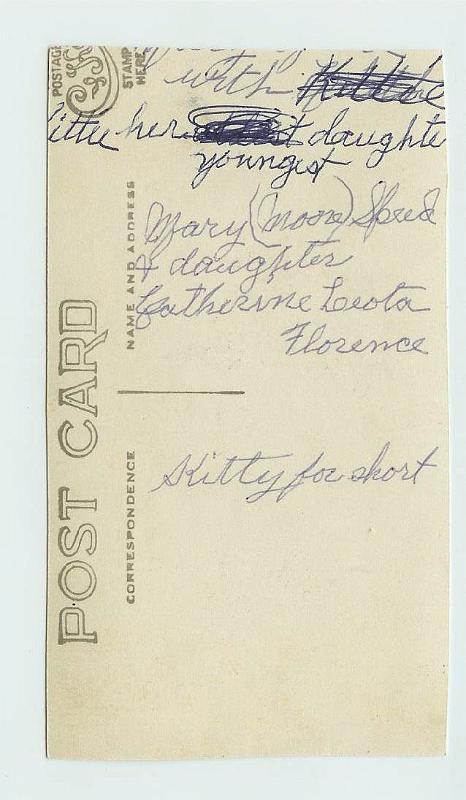 with
Kittie her daughte
youngest
Mary (Moore) Speed
& daughter
Catherine Leota
Florence
Kitty for short
POST CARD
CORRESPONDENCE
NAME AND ADDRESS
POSTAGE
STAMP
HERE